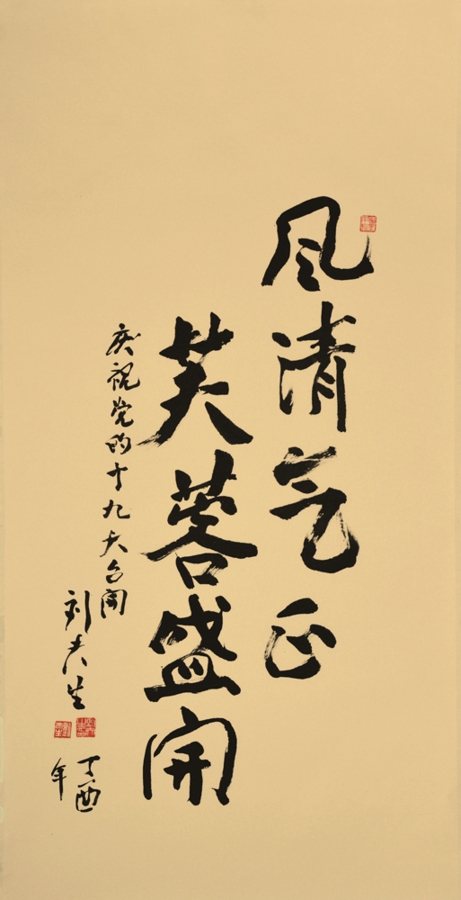 风清气正
芙蓉盛开
庆祝党的十九大召开
刘夫生
丁酉
年